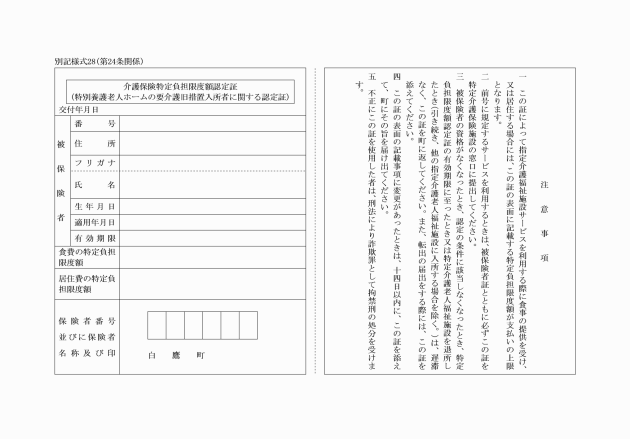 別記様式28(第24条関係)
介護保険特定負担限度額認定証
(特別養護老人ホームの要介護旧措置入所者に関する認定証)
交付年月日
被保険者
番号
住所
フリガナ
氏名
生年月日
適用年月日
有効期限
食費の特定負担
限度額
居住費の特定負
担限度額
保険者番号
並びに保険者
名称及び印
白鷹町
注意事項
一 この証によって指定介護福祉施設サービスを利用する際に食事の提供を受け、
又は居住する場合には、この証の表面に記載する特定負担限度額が支払いの上限
となります。
二 前号に規定するサービスを利用するときは、被保険者証とともに必ずこの証を
特定介護保険施設の窓口に提出してください。
三 被保険者の資格がなくなったとき、認定の条件に該当しなくなったとき、特定
負担限度額認定証の有効期限に至ったとき又は特定介護老人福祉施設を退所し
たとき(引き続き、他の指定介護老人福祉施設に入所する場合を除く。)は、遅滞
なく、この証を町に返してください。また、転出の届出をする際には、この証を
添えてください。
四 この証の表面の記載事項に変更があったときは、十四日以内に、この証を添え
て、町にその旨を届け出てください。
五 不正にこの証を使用した者は、刑法により詐欺罪として拘禁刑の処分を受けま
す。